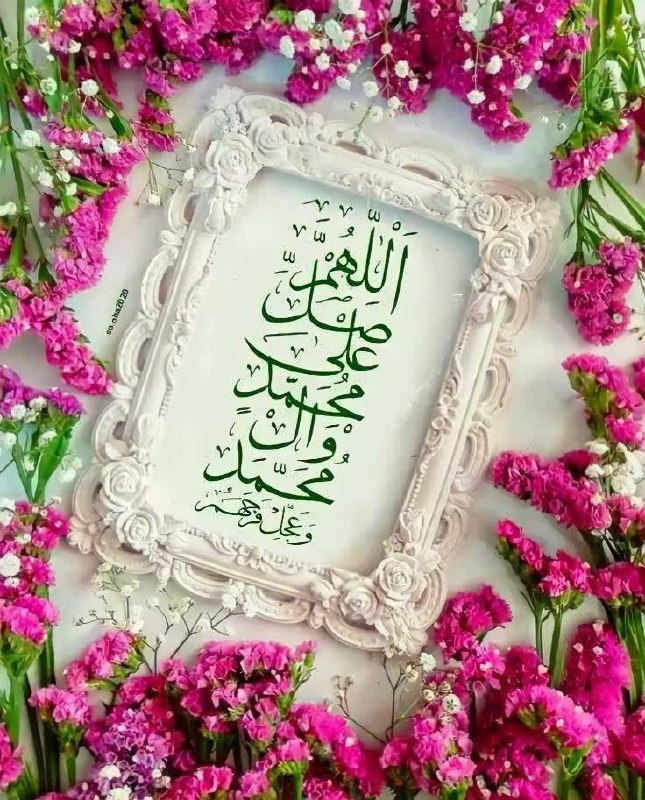 اَللّٰهُمَّ
صَلِّ
عَلی
مُحَمَّدٍ
وَآلِ
مُحَمَّد
وَعَجِّلْ فَرَجَهُمْ
so.oha2020